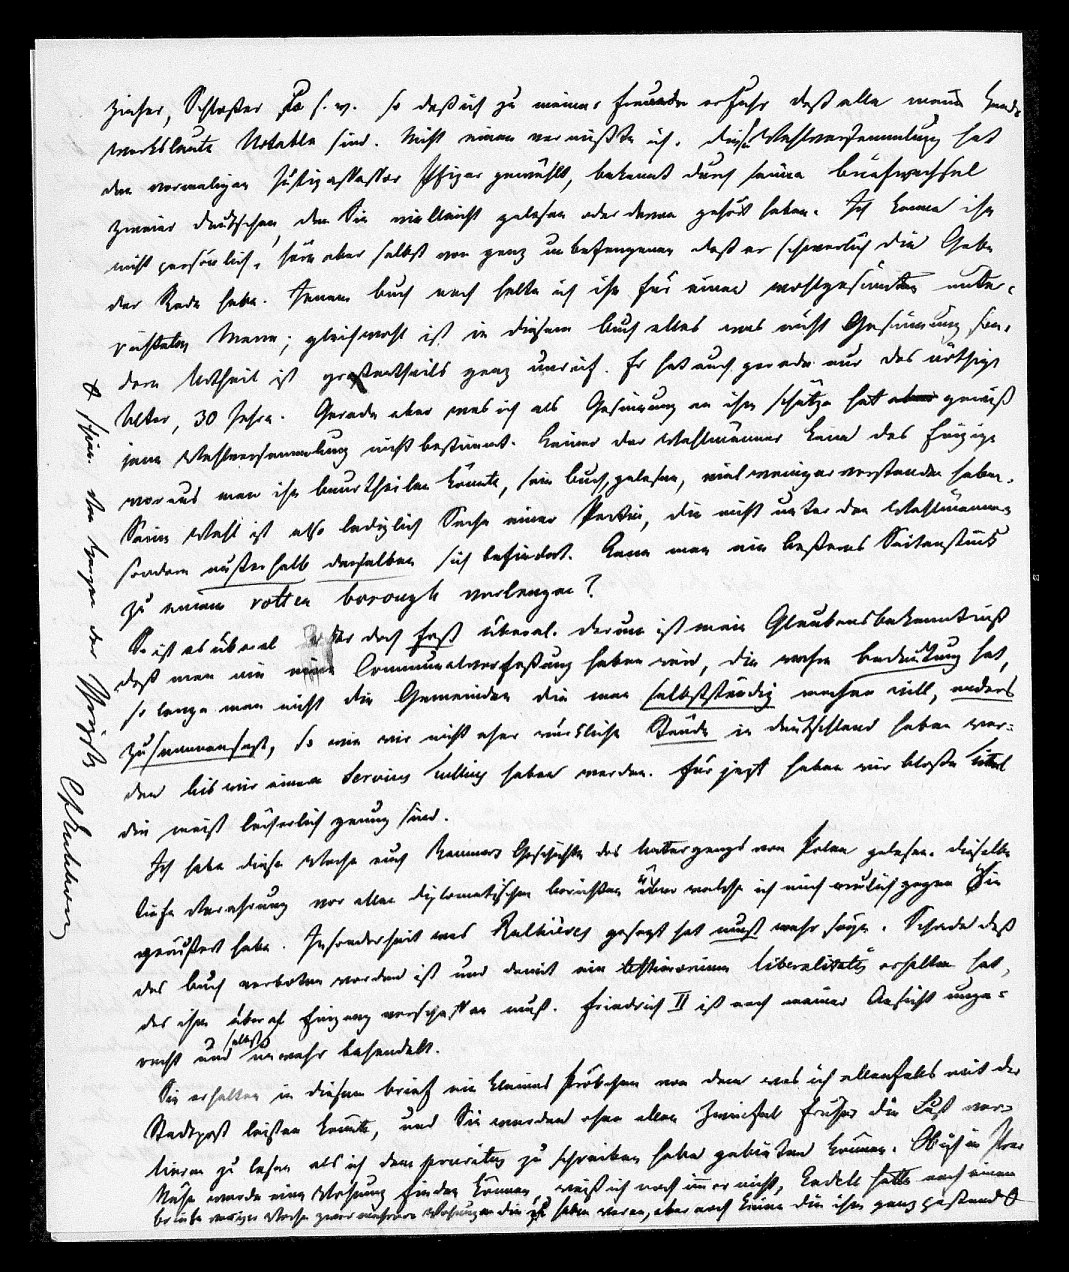 zieher, Schloßer u. s. w. so daß ich zu meiner Freude erfuhr daß alle meine Hand-
werksleute Notable sind. Nicht einen vermißte ich. Diese Wahlversammlung hat
den vormaligen Justizassessor Pfizer gewählt, bekannt durch seinen Briefwechsel
zweier Deutschen, den Sie vielleicht gelesen oder davon gehört haben. Ich kenne ihn
nicht persönlich, höre aber selbst von ganz unbefangenen daß er schwerlich die Gabe
der Rede habe. Jenem Buch nach halte ich ihn für einen wohlgesinnten unter-
richteten Mann; gleichwohl ist in diesem Buch alles was nicht Gesinnung son-
dern Urtheil ist großentheils ganz unreif. Er hat auch gerade nur das nöthige
Alter, 30 Jahre. Gerade aber was ich als Gesinnung an ihm schätze hat gewiß
jene Wahlversammlung nicht bestimmt. Keiner der Wahlmänner kann das Einzige
woraus man ihn beurtheilen könnte, sein Buch, gelesen, viel weniger verstanden haben.
Seine Wahl ist also lediglich Sache einer Partei, die nicht unter den Wahlmännern
sondern außerhalb derselben sich befindet. Kann man ein beßeres Seitenstück
zu einem rotten borough verlangen?
So ist es überal oder doch fast überal. Darum ist mein Glaubensbekenntniß
daß man nie eine Communalverfaßung haben wird, die wahre Bedeutung hat,
so lange man nicht die Gemeinden die man selbstständig machen will, anders
zusammensetzt, so wie wir nicht eher wirkliche Stände in Deutschland haben wer-
den bis wir einen Servius Tullius haben werden. Für jezt haben wir bloße
die meist lächerlich genug sind.
Ich habe diese Woche auch Raumers Geschichte des Untergangs von Polen gelesen. Dieselbe
tiefe Verachtung vor allen diplomatischen Berichten über welche ich mich neulich gegen Sie
geäußert habe. Insonderheit was Rulhières gesagt hat muß wahr seyn. Schade daß
das Buch verboten worden ist und damit ein testimonium liberalitatis erhalten hat,
das ihm überal Eingang verschaffen muß. Friedrich II ist nach meiner Ansicht unge-
recht und selbst unwahr behandelt.
Sie erhalten in diesem Brief ein kleines Pröbchen von dem was ich allenfalls mit der
Stadtpost leisten könnte, und Sie werden ohne allen Zweifel früher die Lust ver-
lieren zu lesen als ich dem zu schreiben haben gebieten können. Ob ich in Ihrer
Nähe werde eine Wohnung finden können, weiß ich noch immer nicht, hatte nach einem
Briefe voriger Woche zwar mehrere Wohnungen die zu haben waren, aber noch keine die ihm ganz gestanden
schien. Von wegen der